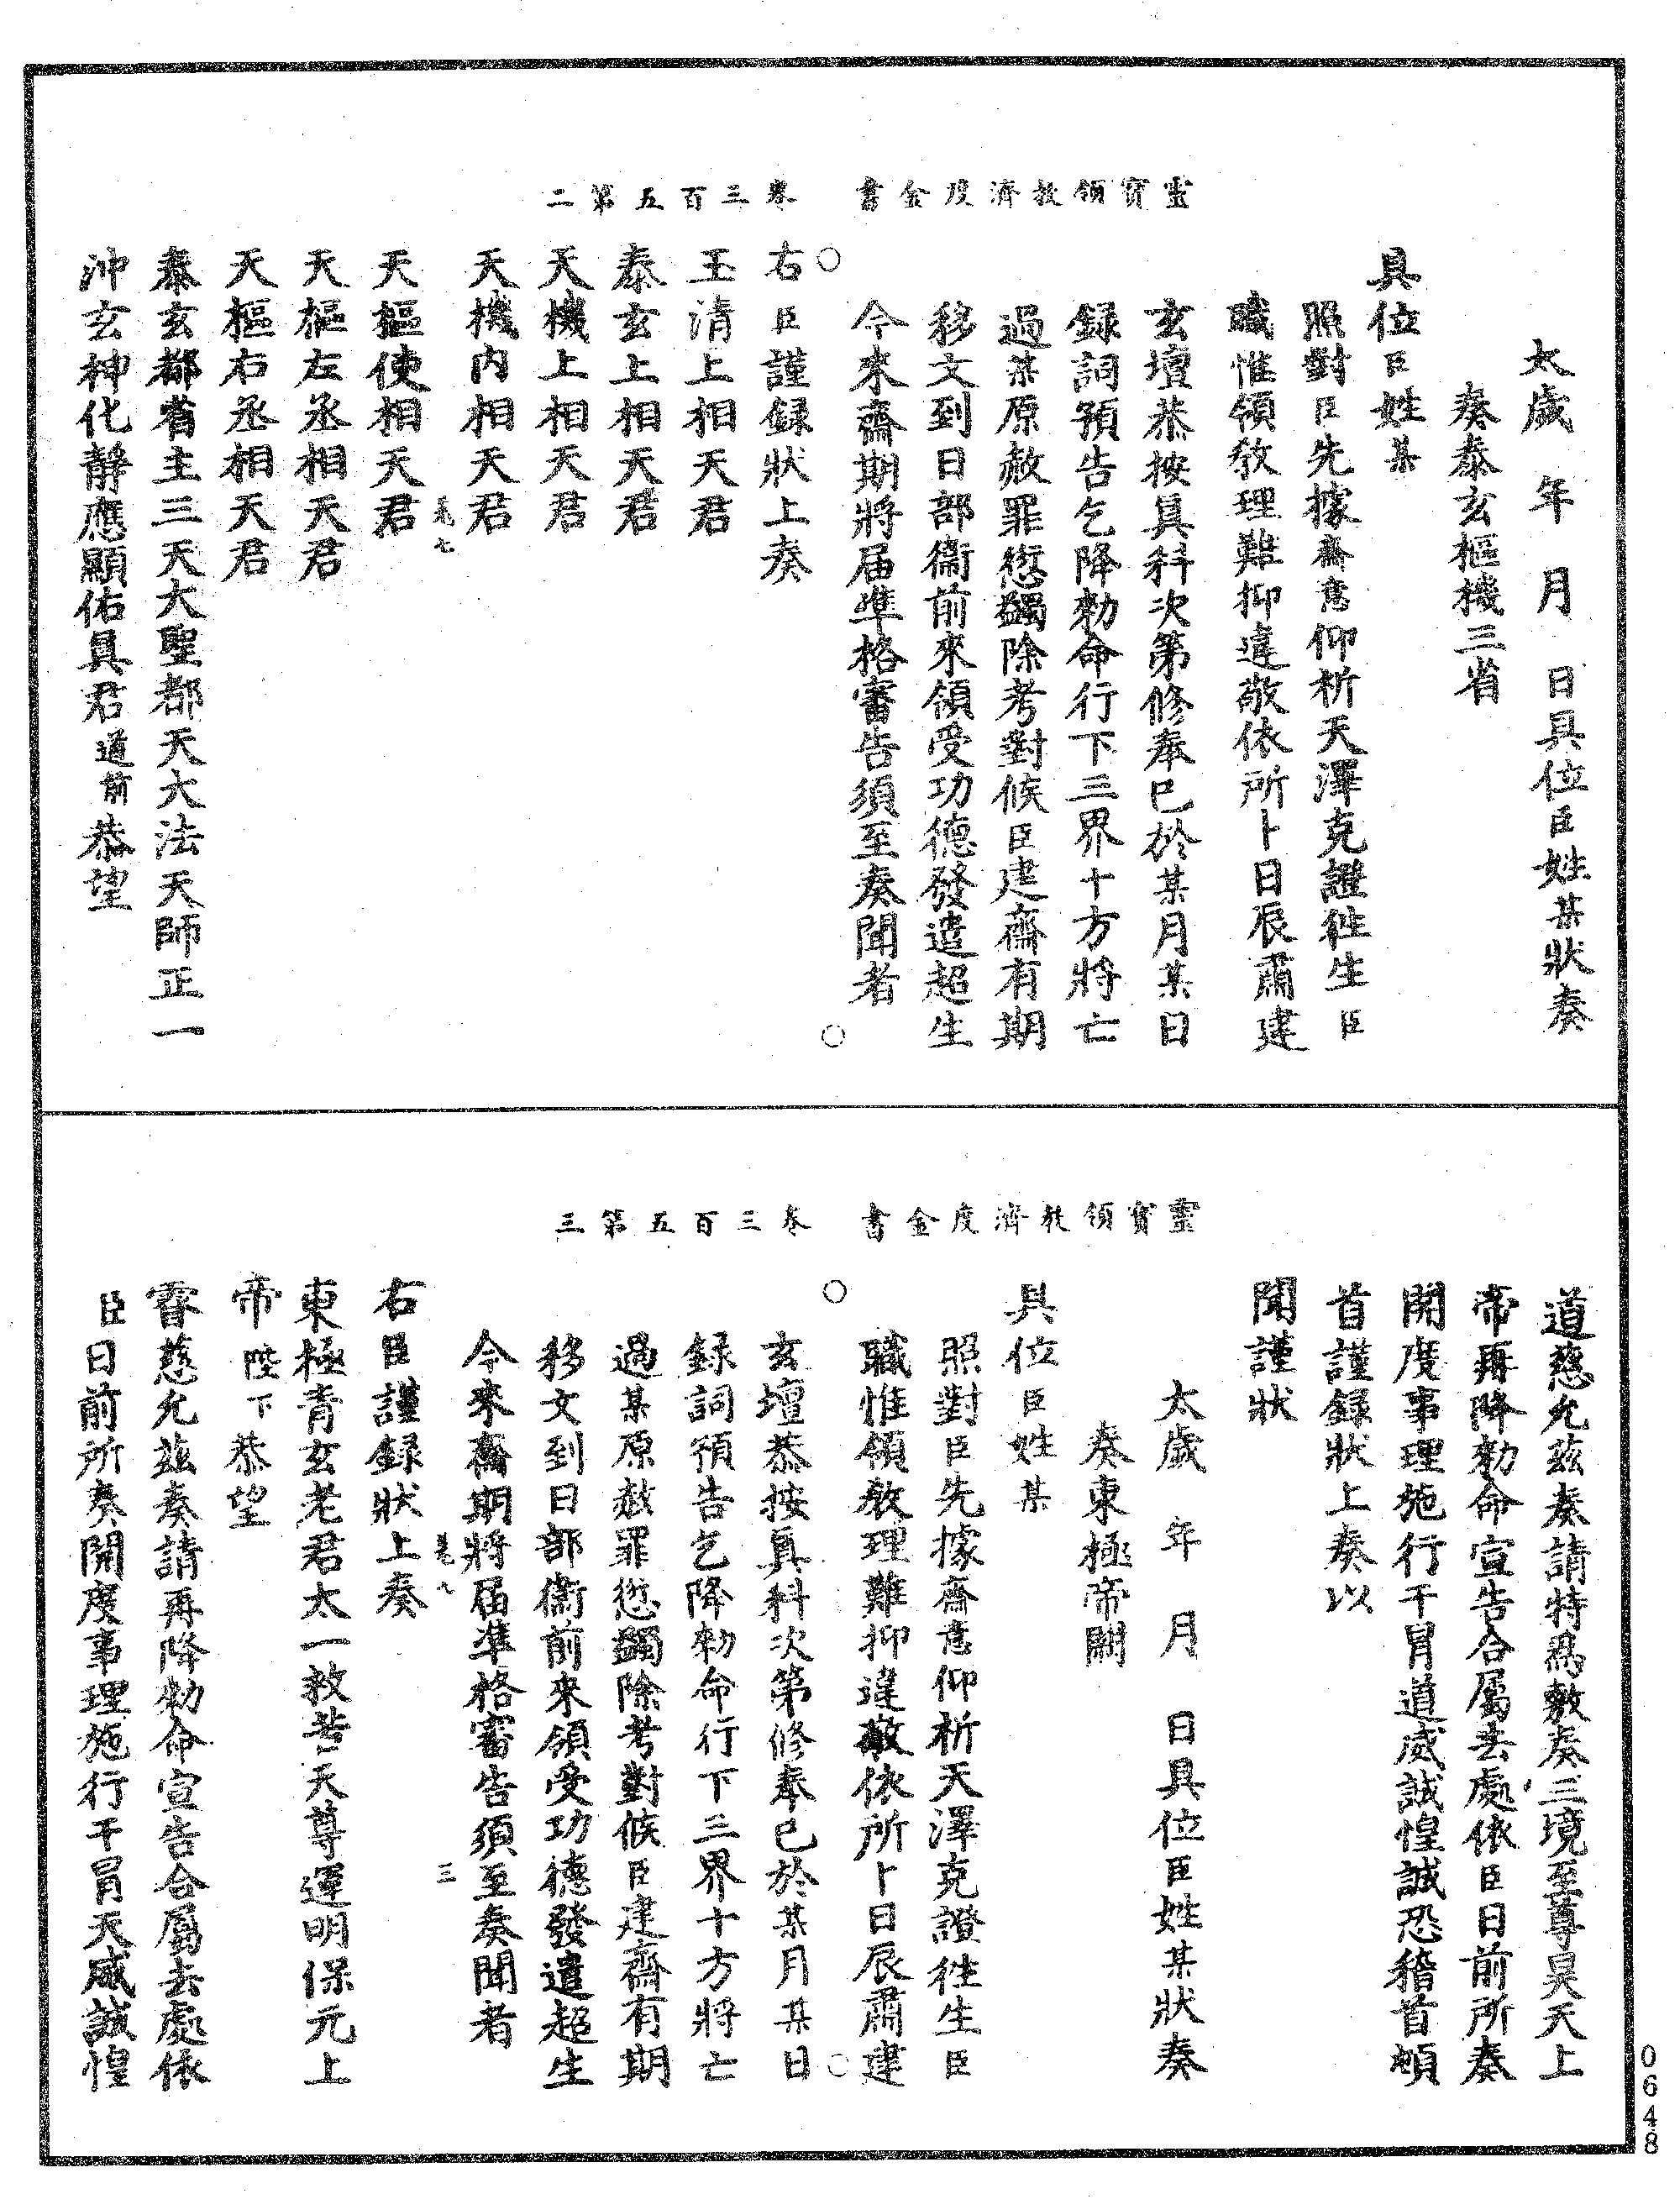 靈寶領教濟度金書 卷三百五第二
太歲 年 月 日具位臣姓某狀奏
奏泰玄樞機三省
具位臣姓某
照對臣先據齋意仰析天澤克證徃生臣
職惟領教理難抑違敬依所卜日辰肅建
玄壇恭按眞科次第修奉已於某月某日
録詞預告乞降勑命行下三界十方將亡
過某原赦罪愆蠲除考對候臣建齋有期
移文到日部衞前來領受功德發遣超生
今來齋期將届準格審告須至奏聞者
右臣謹録狀上奏
玉清上相天君
泰玄上相天君
天機上相天君
天機内相天君
天樞使相天君
天樞左丞相天君
天樞右丞相天君
泰玄都省主三天大聖都天大法天師正一
沖玄神化靜應顯佑眞君道前恭望
靈寶領教濟度金書 卷三百五第三
道慈允茲奏請特爲敷奏三境至尊昊天上
帝再降勑命宣告合屬去處依臣日前所奏
開度事理施行干冒道威誠惶誠恐稽首頓
首謹録狀上奏以
聞謹狀
太歲 年 月 日具位臣姓某狀奏
奏東極帝闕
具位臣姓某
照對臣先據齋意仰析天澤克證徃生臣
職惟領教理難抑違敬依所卜日辰肅建
玄壇恭按眞科次第修奉已於某月某日
録詞預告乞降勑命行下三界十方將亡
過某原赦罪愆蠲除考對候臣建齋有期
移文到日部衞前來領受功德發遣超生
今來齋期將届準格審告須至奏聞者
右臣謹録狀上奏
東極青玄老君太一救苦天尊運明保元上
帝陛下恭望
睿慈允茲奏請再降勑命宣告合屬去處依
臣日前所奏開度事理施行干冒天威誠惶
0648